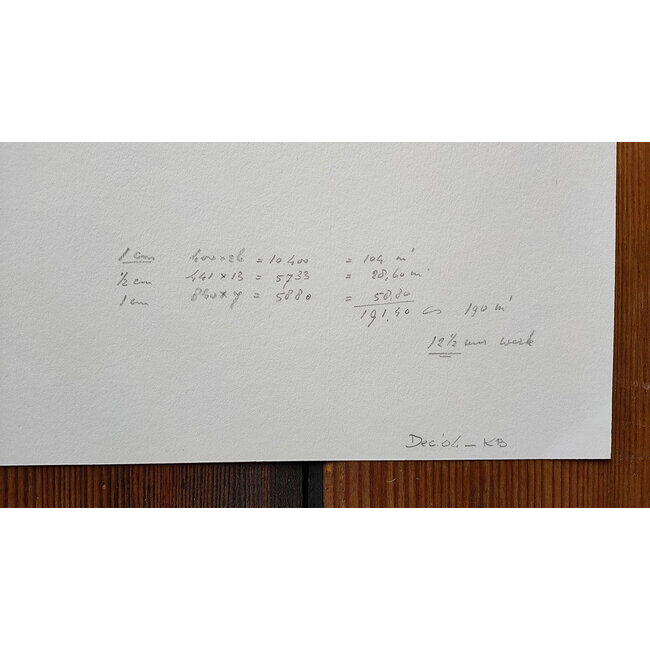 1 cm 400 × 26 = 10400 = 104 m'
½ cm 441 × 13 = 5733 = 28,60 m'
1 cm 840 × 7 = 5880 = 58,80
191,40 ca 190 m'
12½ uur werk
Dec.'04 – KB